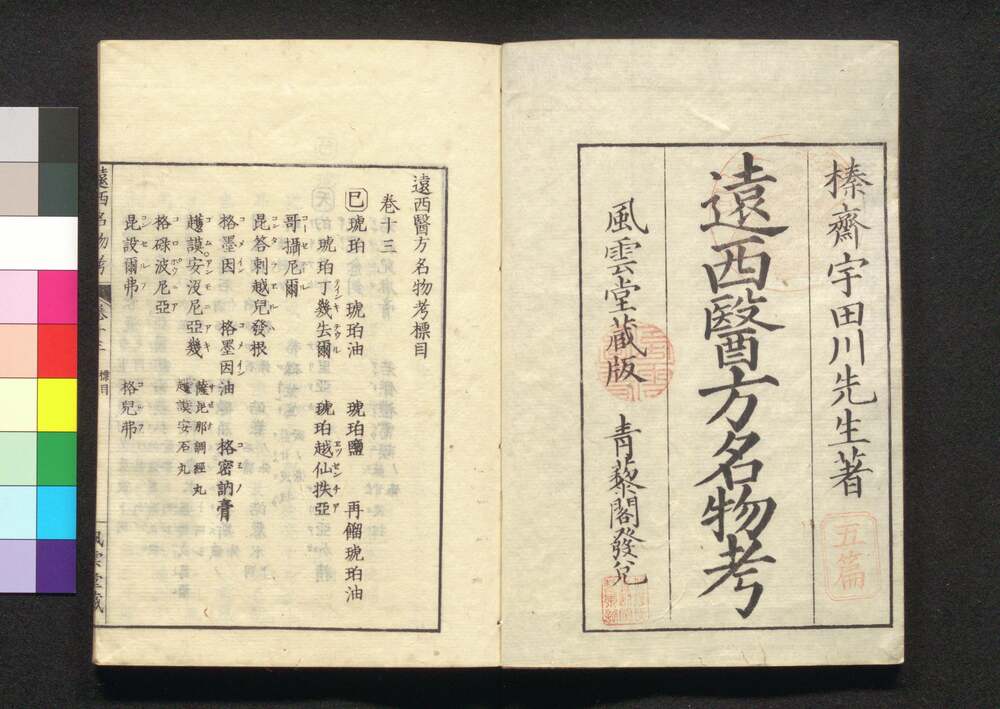 榛齋宇田川先生著
五篇
遠西醫方名物考
風雲堂蔵版
青藜閣發兌
遠西醫方名物考標目
卷十三
巳 琥珀 琥珀油 琥珀鹽 再餾琥珀油
琥珀丁幾去爾 琥珀越仙挟亞
哥攝尼爾
昆答刺越兒發根
格墨因 格墨因油 格密訥膏
護謨安没尼亞幾 薩毘那調經丸
護謨安石丸
格碌波尼亞
昆設爾弗 格兒弗
遠西名物考 卷十三 標目
風雲堂蔵